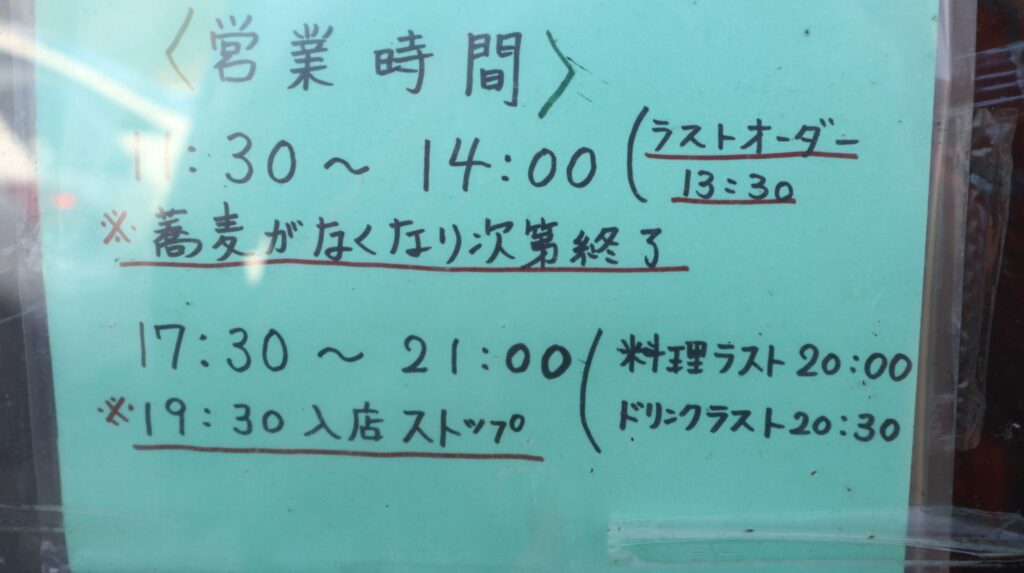 〈営業時間〉
11:30～14:00(ラストオーダー
13:30
※蕎麦がなくなり次第終了
17:30～21:00(料理ラスト20:00
ドリンクラスト20:30
※19:30入店ストップ